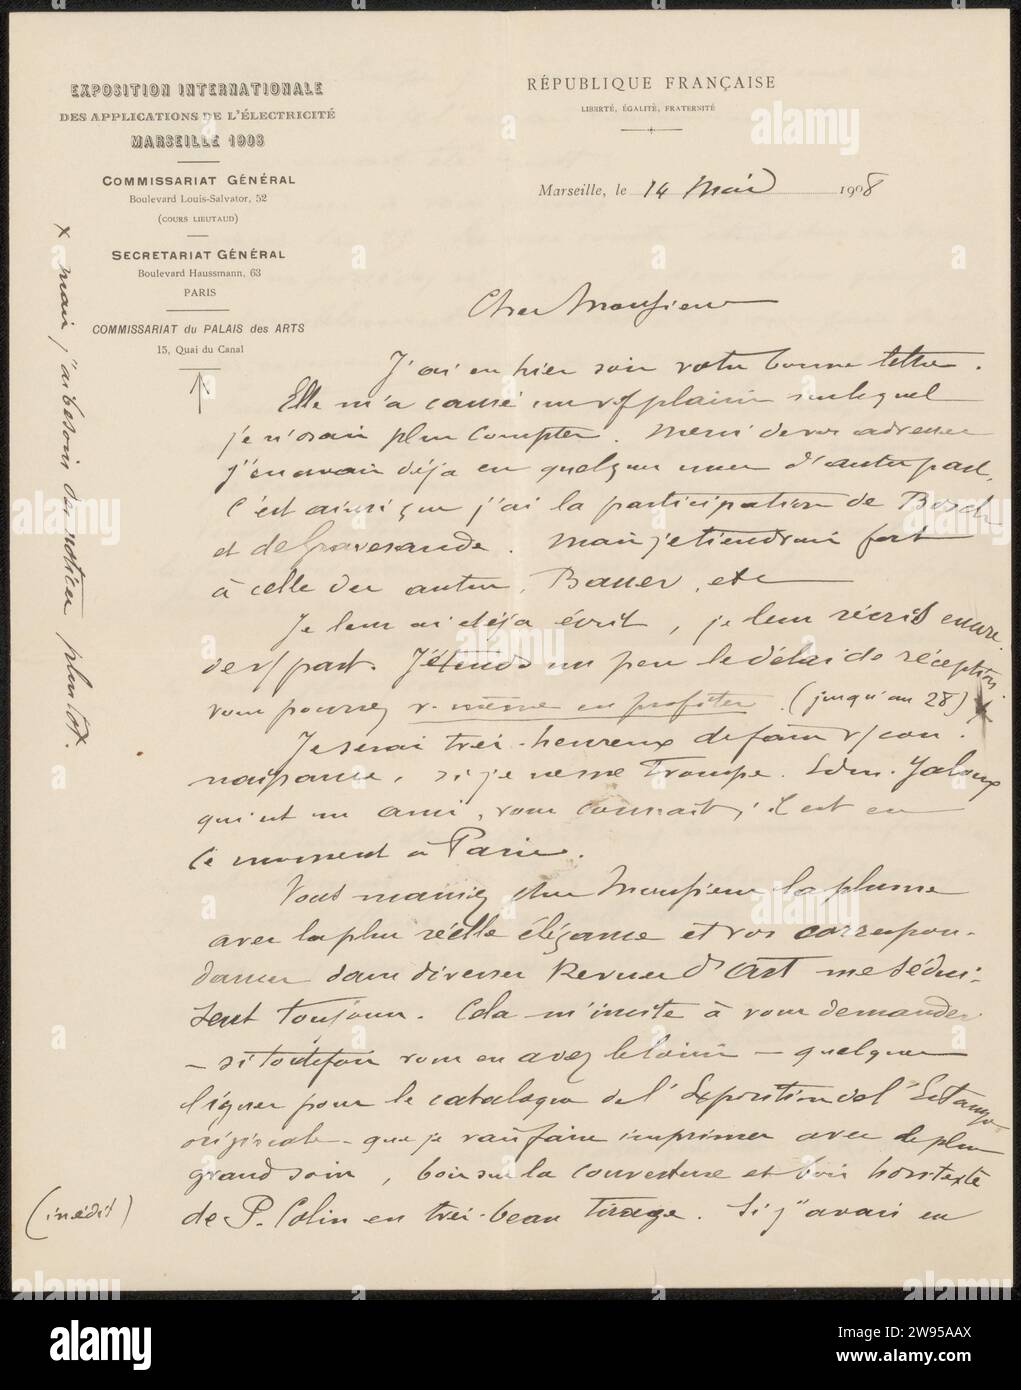 EXPOSITION INTERNATIONALE
DES APPLICATIONS DE L'ÉLECTRICITÉ
MARSEILLE 1908
COMMISSARIAT GÉNÉRAL
Boulevard Louis-Salvator, 52
(COURS LIEUTAUD)
SECRETARIAT GÉNÉRAL
Boulevard Haussmann, 63
PARIS
COMMISSARIAT du PALAIS des ARTS
15, Quai du Canal
RÉPUBLIQUE FRANÇAISE
LIBERTÉ, ÉGALITÉ, FRATERNITÉ
Marseille, le 14 Mai 1908
Cher Monsieur
J'ai eu hier soir votre bonne lettre.
Elle m'a causé un plaisir sur lequel
je n'osais plus compter. Merci de vos adresses
j'en avais déjà eu quelques unes d'autre part.
C'est ainsi que j'ai la participation de Bosch
et de Gravesande. Mais je tiendrais fort
à celle des autres, Bauer, etc
Je leur ai déjà écrit, je leur récris encore
de v/ part. J'étends un peu le délai de réception
vous pourrez v. même en profiter. (jusqu'au 28) x
Je serai très-heureux de faire v/ con-
naissance, si je ne me trompe. Edm. Jaloux
qui est un ami, vous connait; il est en
ce moment à Paris.
Vous maniez cher Monsieur la plume
avec la plus réelle élégance et vos correspon-
dances dans diverses Revues d'Art me sédui-
sent toujours. Cela m'incite à vous demander
- si toutefois vous en avez le loisir - quelques
lignes pour le catalogue de l'Exposition de l'Estampe
originale - que je vais faire imprimer avec le plus
grand soin, bois sur la couverture et bois hors texte
de P. Colin en très-beau tirage. Si j'avais eu
(inédit)
x mais j'ai besoin des notices plus tôt.
alamy
Image ID: 2W95AAX
www.alamy.com